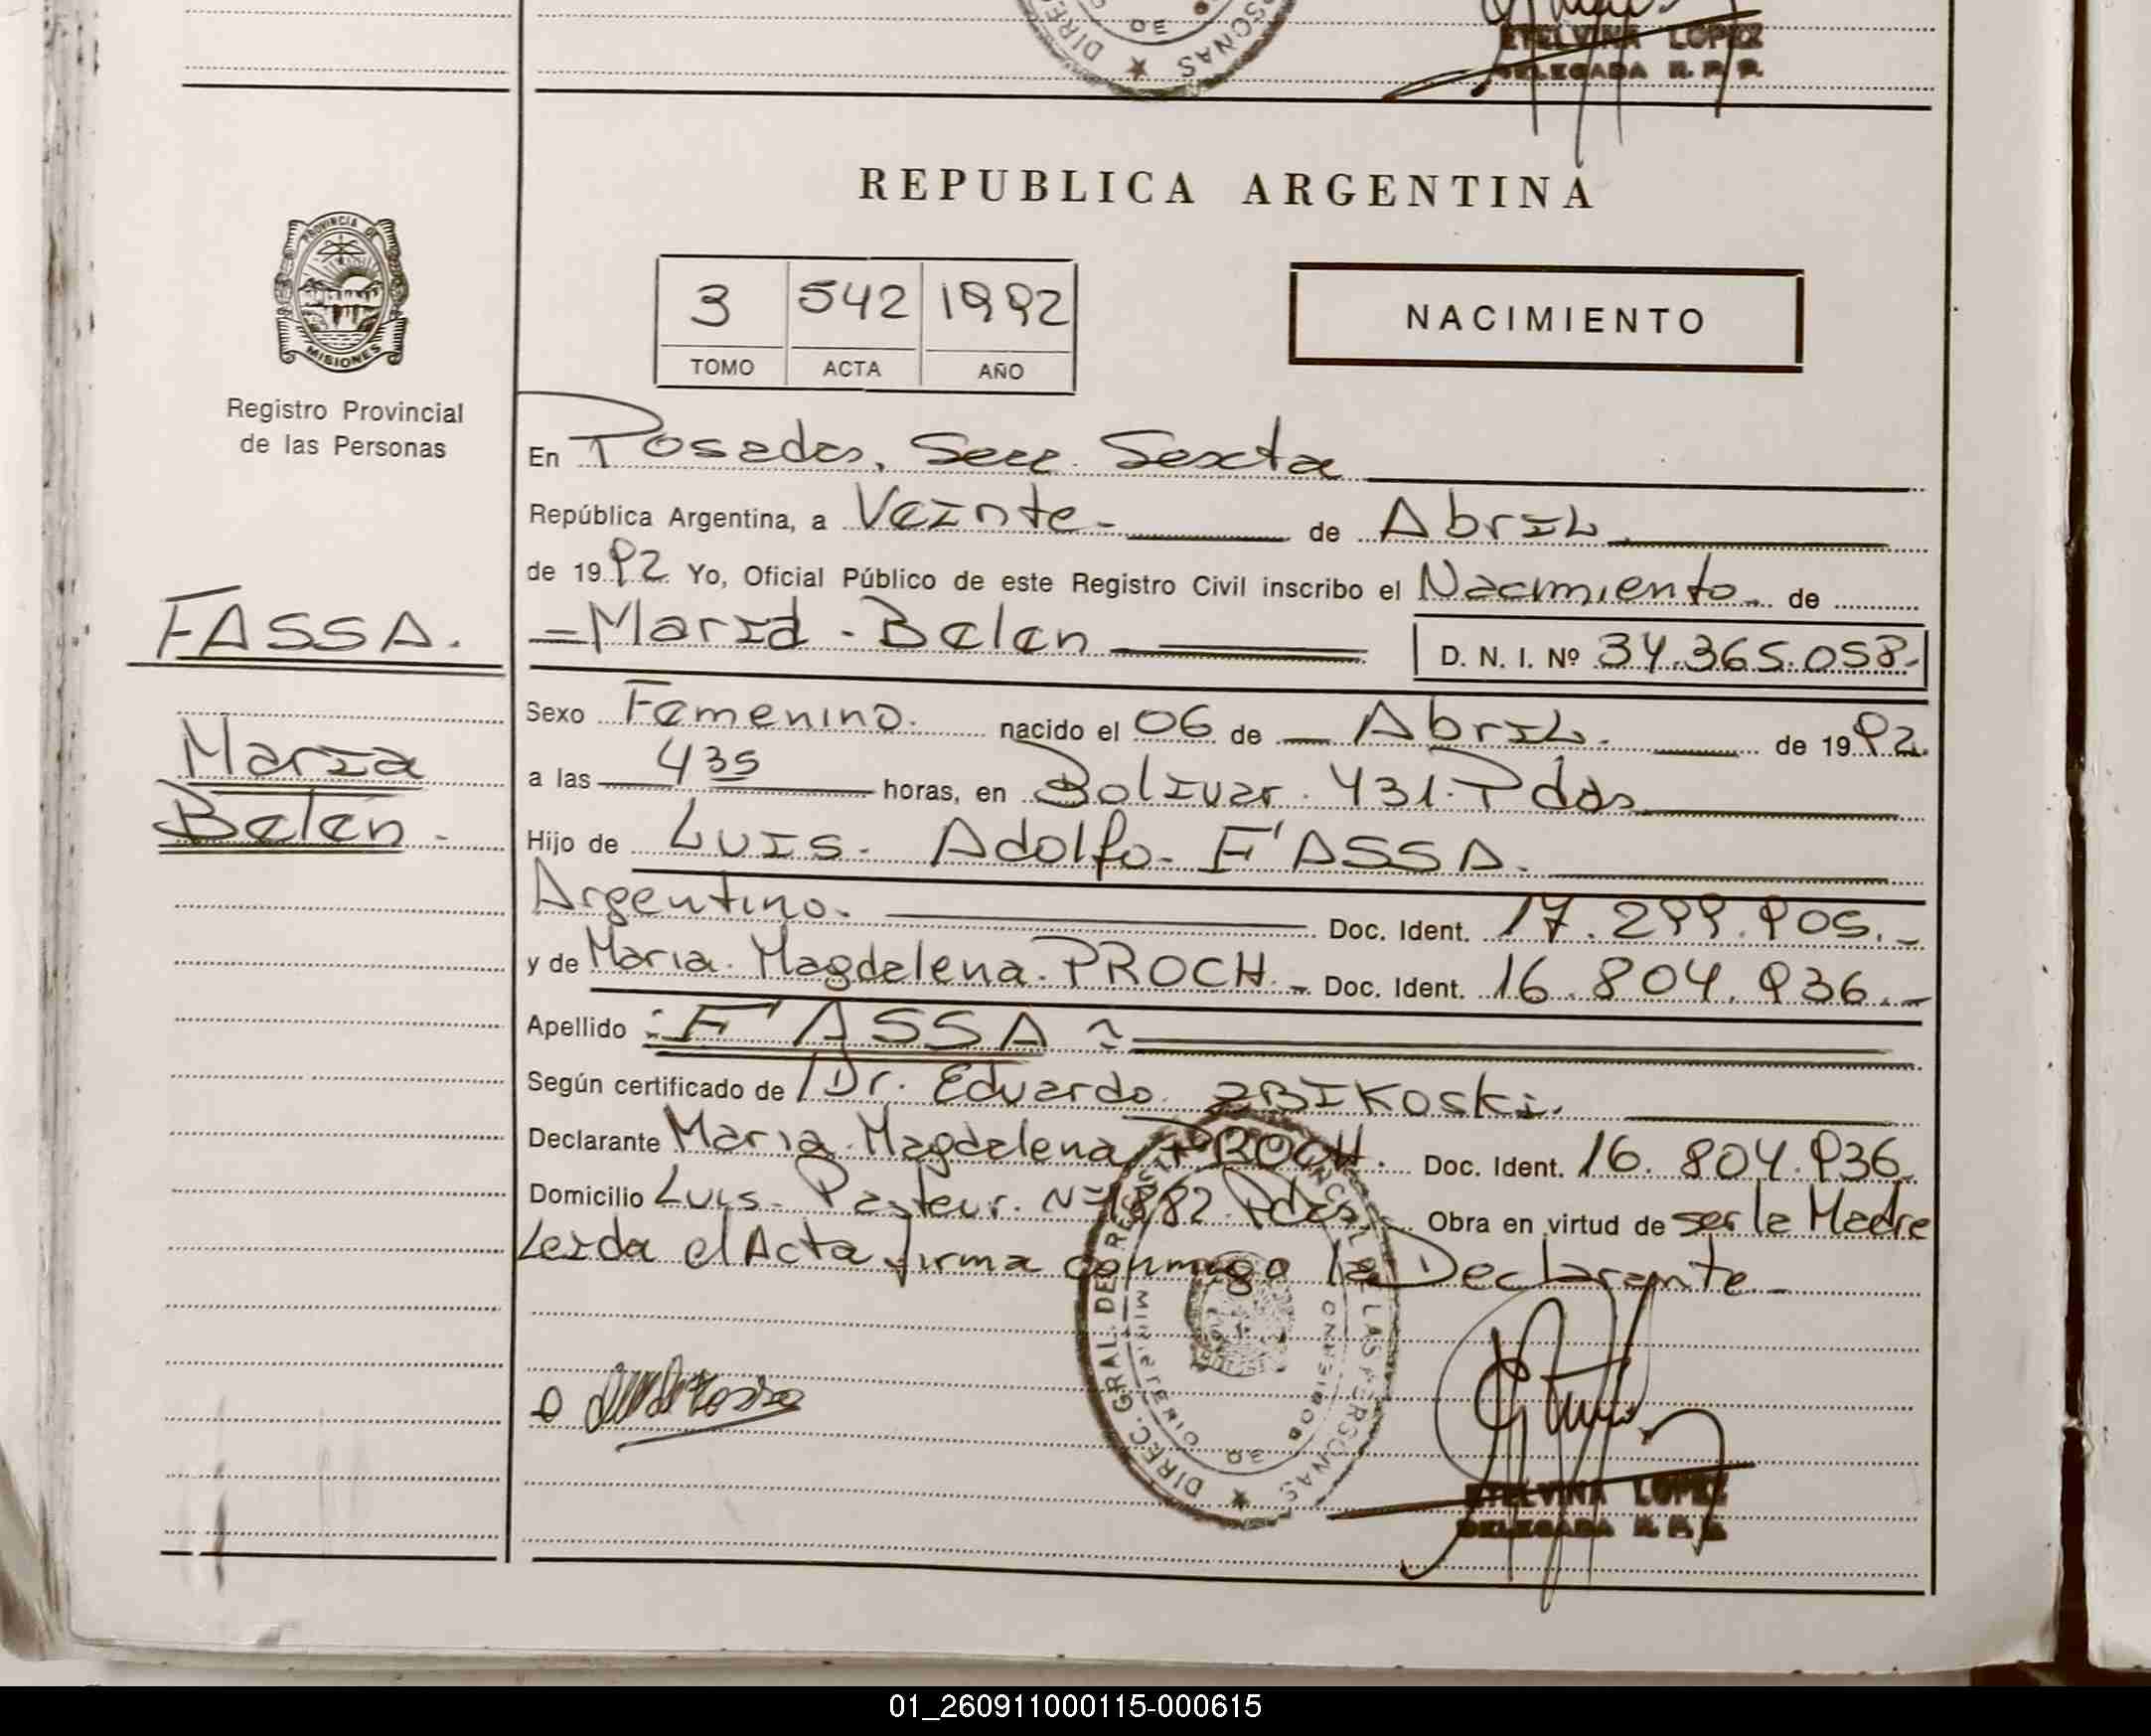 DE
DIREC
PERSONAS
ETELVINA LOPEZ
DELEGADA R. P. P.
REPUBLICA ARGENTINA
PROVINCIA DE
MISIONES
Registro Provincial
de las Personas
3 542 1992
TOMO ACTA AÑO
NACIMIENTO
En Posadas, Secc. Sexta
República Argentina, a Veinte.- de Abril.
de 1992. Yo, Oficial Público de este Registro Civil inscribo el Nacimiento de
FASSA.
=Maria - Belen D. N. I. Nº 34.365.058.-
Maria
Belén.-
Sexo Femenino. nacido el 06 de Abril. de 1992.
a las 4 35 horas, en Bolivar. 431. Pdas
Hijo de Luis. Adolfo. F'ASSA.
Argentino. Doc. Ident. 17.299.905.-
y de Maria. Magdalena. PROCH.- Doc. Ident. 16.804.936.-
Apellido F'ASSA
Según certificado de Dr. Eduardo ZBIKoski.
Declarante Maria. Magdalena PROCH. Doc. Ident. 16.804.936.
Domicilio Luis. Pasteur. Nº 1882. Pdas. Obra en virtud de ser la Madre
Leida el Acta firma conmigo la Declarante.-
DIREC. GRAL. DEL REGISTRO PROVINCIAL DE LAS PERSONAS
MINISTERIO DE GOBIERNO
ETELVINA LOPEZ
DELEGADA R. P. P.
01_260911000115-000615